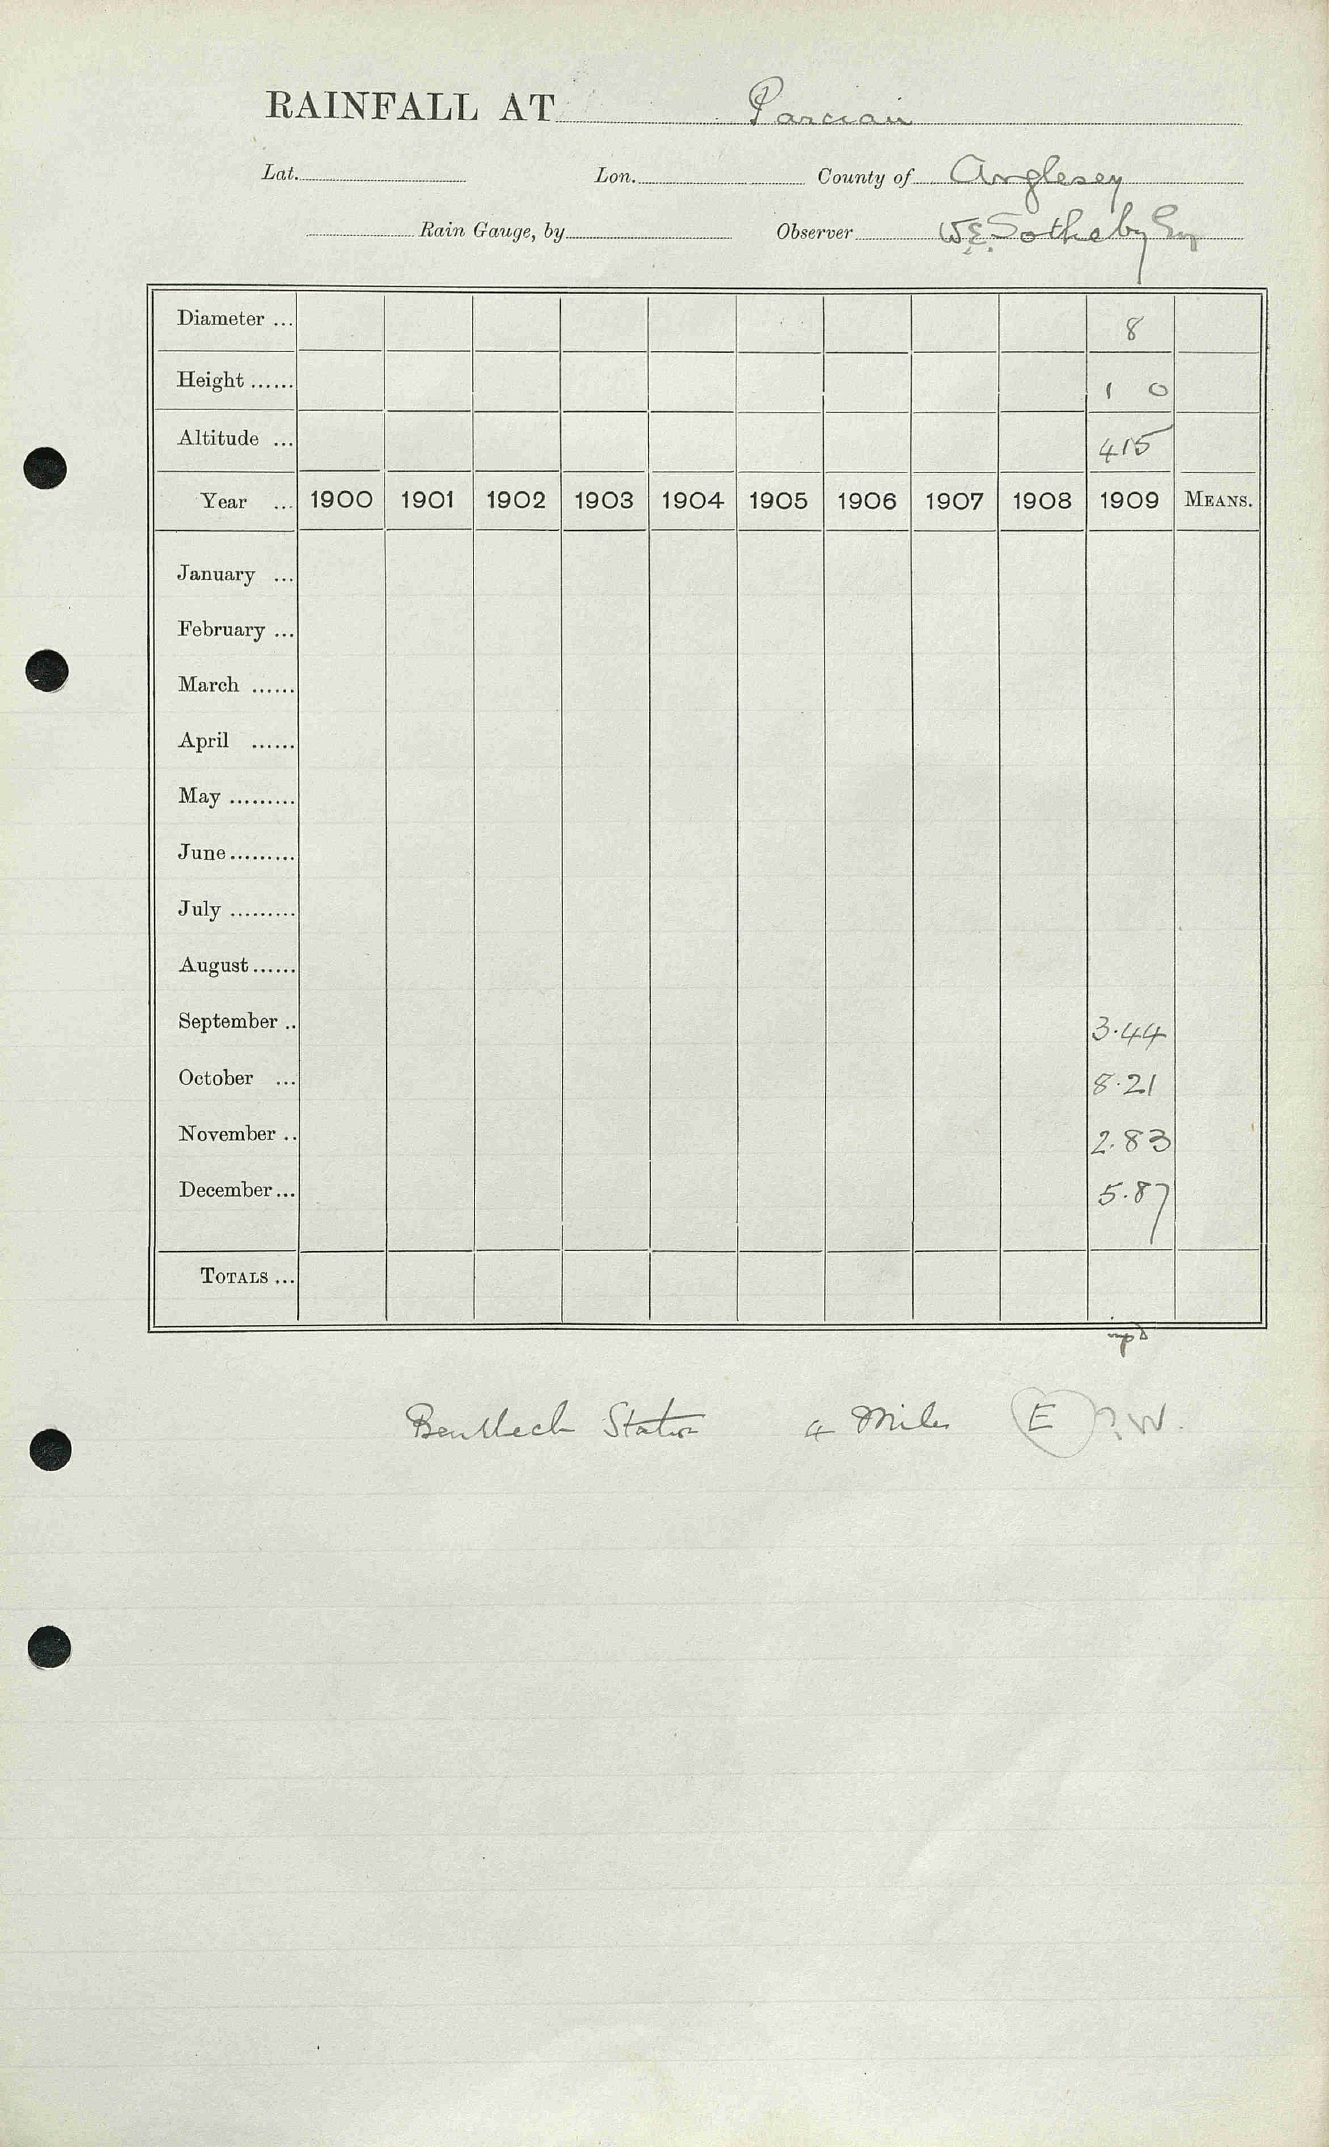 RAINFALL AT Parcian
Lat. Lon. County of Anglesey
Rain Gauge, by Observer W.E. Sotheby Esq
Diameter ... 8
Height ...... 1 0
Altitude ... 415
Year ... 1900 1901 1902 1903 1904 1905 1906 1907 1908 1909 MEANS.
January ...
February ...
March ......
April ......
May .........
June .........
July .........
August ......
September .. 3.44
October ... 8.21
November .. 2.83
December ... 5.87
TOTALS ...
Benllech Station 4 Miles E ? W.